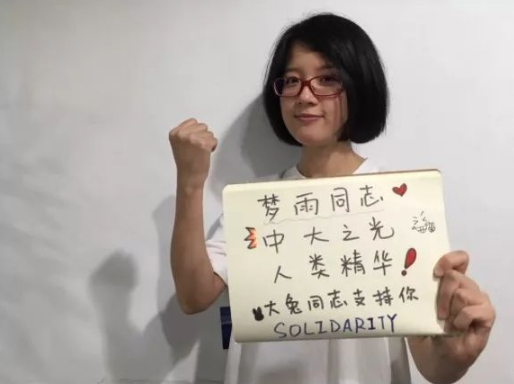 梦雨同志
中大之光
人类精华!
大兔同志支持你
SOLIDARITY